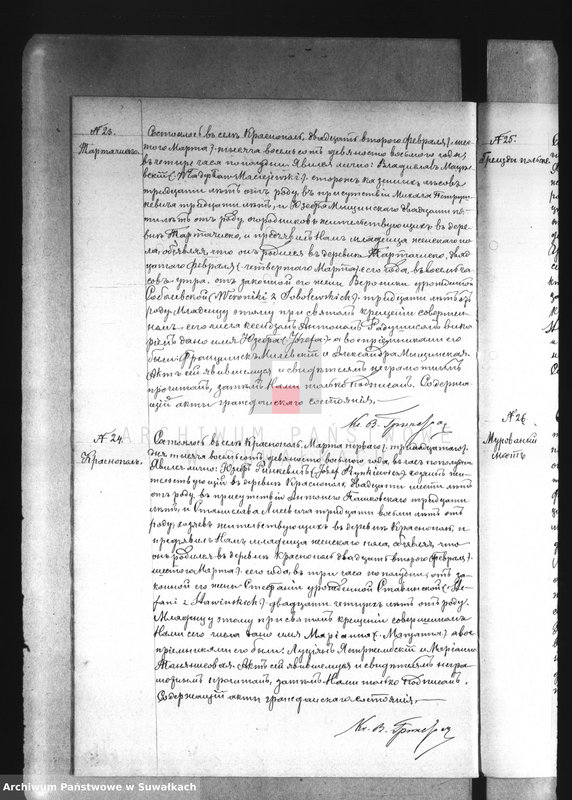 № 23.
Тартачиско.
Состоялось въ селѣ Краснополь, двадцать второго Февраля/ шес-
того Марта/ тысяча восемьсотъ девяносто восьмого года,
въ четыре часа пополудни. Явился лично: Владиславъ Мацѣев-
скій (Władysław Maciejewski) сторожъ казенныхъ лѣсовъ
тридцати лѣтъ отъ роду, въ присутствіи
тридцати лѣтъ, и Юзефа Мышинскаго двадцати
лѣтъ отъ роду, огородниковъ жительствующихъ въ дерев-
нѣ Тартачиско, и предъявилъ Намъ младенца женскаго по-
ла, объявляя, что онъ родился въ деревнѣ Тартачиско, два-
дцатаго Февраля (четвертаго Марта) сего года, въ восемь ча-
совъ утра, отъ законной его жены Вероники урожденной
Соболевской (Weroniki z Sobolewskich) тридцати лѣтъ отъ
роду. Младенцу этому при святомъ крещеніи совершен-
номъ сего числа ксендзомъ Антономъ вика-
ріемъ дано имя Юзефа (Józefa) а воспріемниками его
были Францишекъ и Александра Мышинская.
Актъ сей явившемуся и свидѣтелямъ неграмотнымъ
прочитанъ, затѣмъ Нами только подписанъ. Содержа-
щій акты гражданскаго состоянія.
Кс. В.
№ 24.
Краснополь.
Состоялось въ селѣ Краснополь, Марта перваго/ тринадцатаго/
дня тысяча восемьсотъ девяносто восьмого года, въ часъ пополудни.
Явился лично: Юзефъ Рынкевичъ (Józef Rynkiewicz) хозяинъ жи-
тельствующій въ деревнѣ Краснополь двадцати шести лѣтъ
отъ роду, въ присутствіи Антонего тридцати
лѣтъ, и Станислава тридцати восьми лѣтъ отъ
роду, хозяевъ жительствующихъ въ деревнѣ Краснополь, и
предъявилъ Намъ младенца женскаго пола, объявляя, что
онъ родился въ деревнѣ Краснополь двадцать второго Февраля/
шестого Марта/ сего года, въ три часа пополудни, отъ за-
конной его жены Стефаніи урожденной Ставинской (Ste-
fanii z Stawinskich) двадцати четырехъ лѣтъ отъ роду.
Младенцу этому при святомъ крещеніи совершенномъ
Нами сего числа дано имя Маріанна (Maryanna) а вос-
пріемниками его были: Луціянъ Ястржемскій и Маріанна
Актъ сей явившемуся и свидѣтелямъ негра-
мотнымъ прочитанъ, затѣмъ Нами только подписанъ.
Содержащій акты гражданскаго состоянія.
Кс. В.
№ 25.
№ 26.
Мурованный
мостъ
ARCHIWUM PAŃSTWOWE
Archiwum Państwowe w Suwałkach